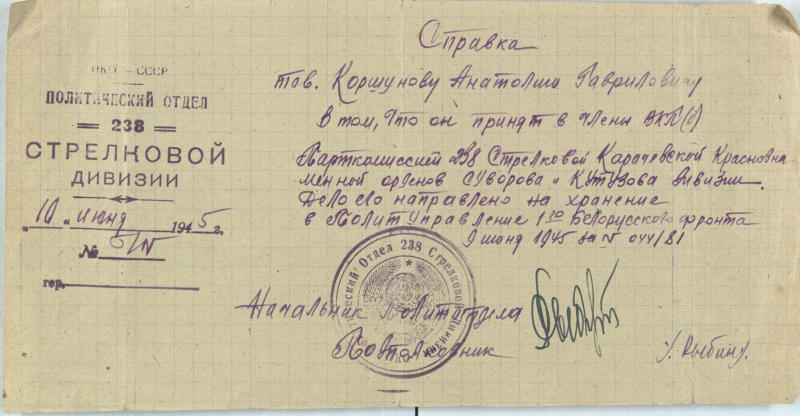 НКО – СССР
ПОЛИТИЧЕСКИЙ ОТДЕЛ
238
СТРЕЛКОВОЙ
ДИВИЗИИ
"10" июня 1945 г.
№ б/N
гор.
Справка
тов. Коршунову Анатолию Гавриловичу
в том, что он принят в члены ВКП(б)
Парткомиссией 238 Стрелковой Карачевской Краснозна-
менной орденов Суворова и Кутузова дивизии.
Дело его направлено на хранение
в Полит управление 1го Белорусского фронта
9 июня 1945 за N 044/81
Отдел 238 Стрелковой Дивизии
Начальник Политотдела
Подполковник